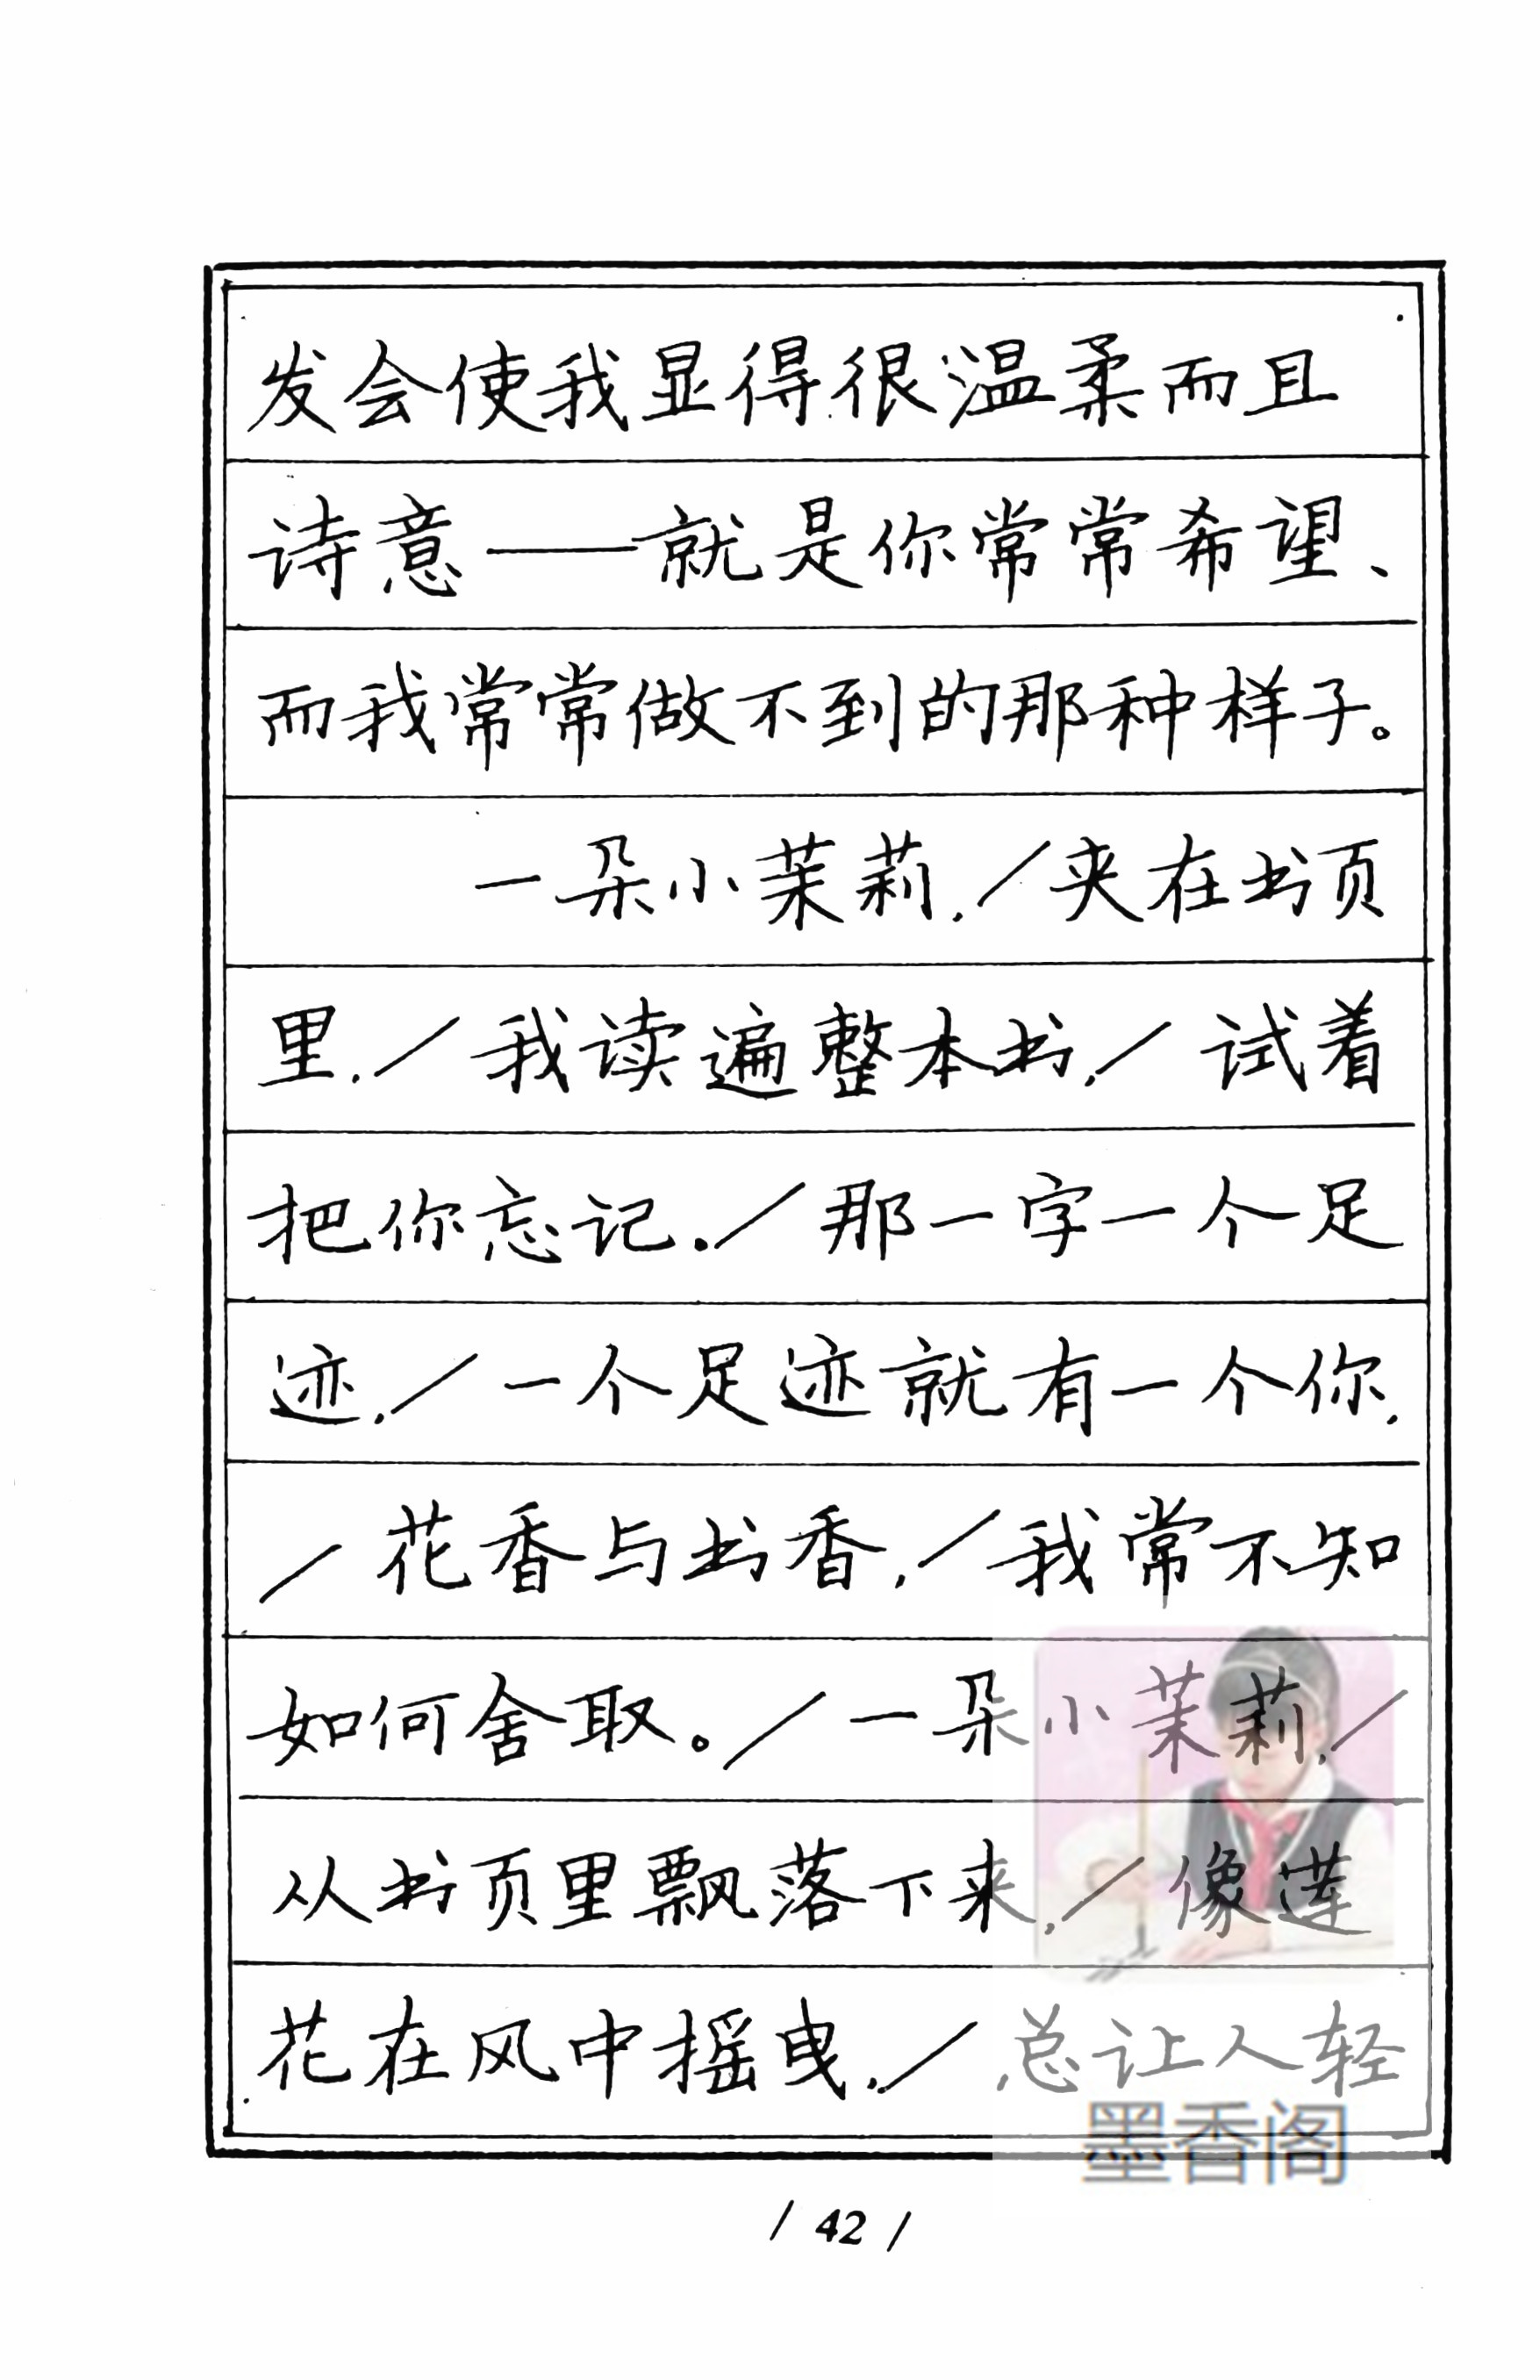 发会使我显得很温柔而且
诗意——就是你常常希望、
而我常常做不到的那种样子。
一朵小茉莉，／夹在书页
里，／我读遍整本书，／试着
把你忘记．／那一字一个足
迹，／一个足迹就有一个你，
／花香与书香，／我常不知
如何舍取。／一朵小茉莉，／
从书页里飘落下来，／像莲
花在风中摇曳，／总让人轻
墨香阁
/ 42 /